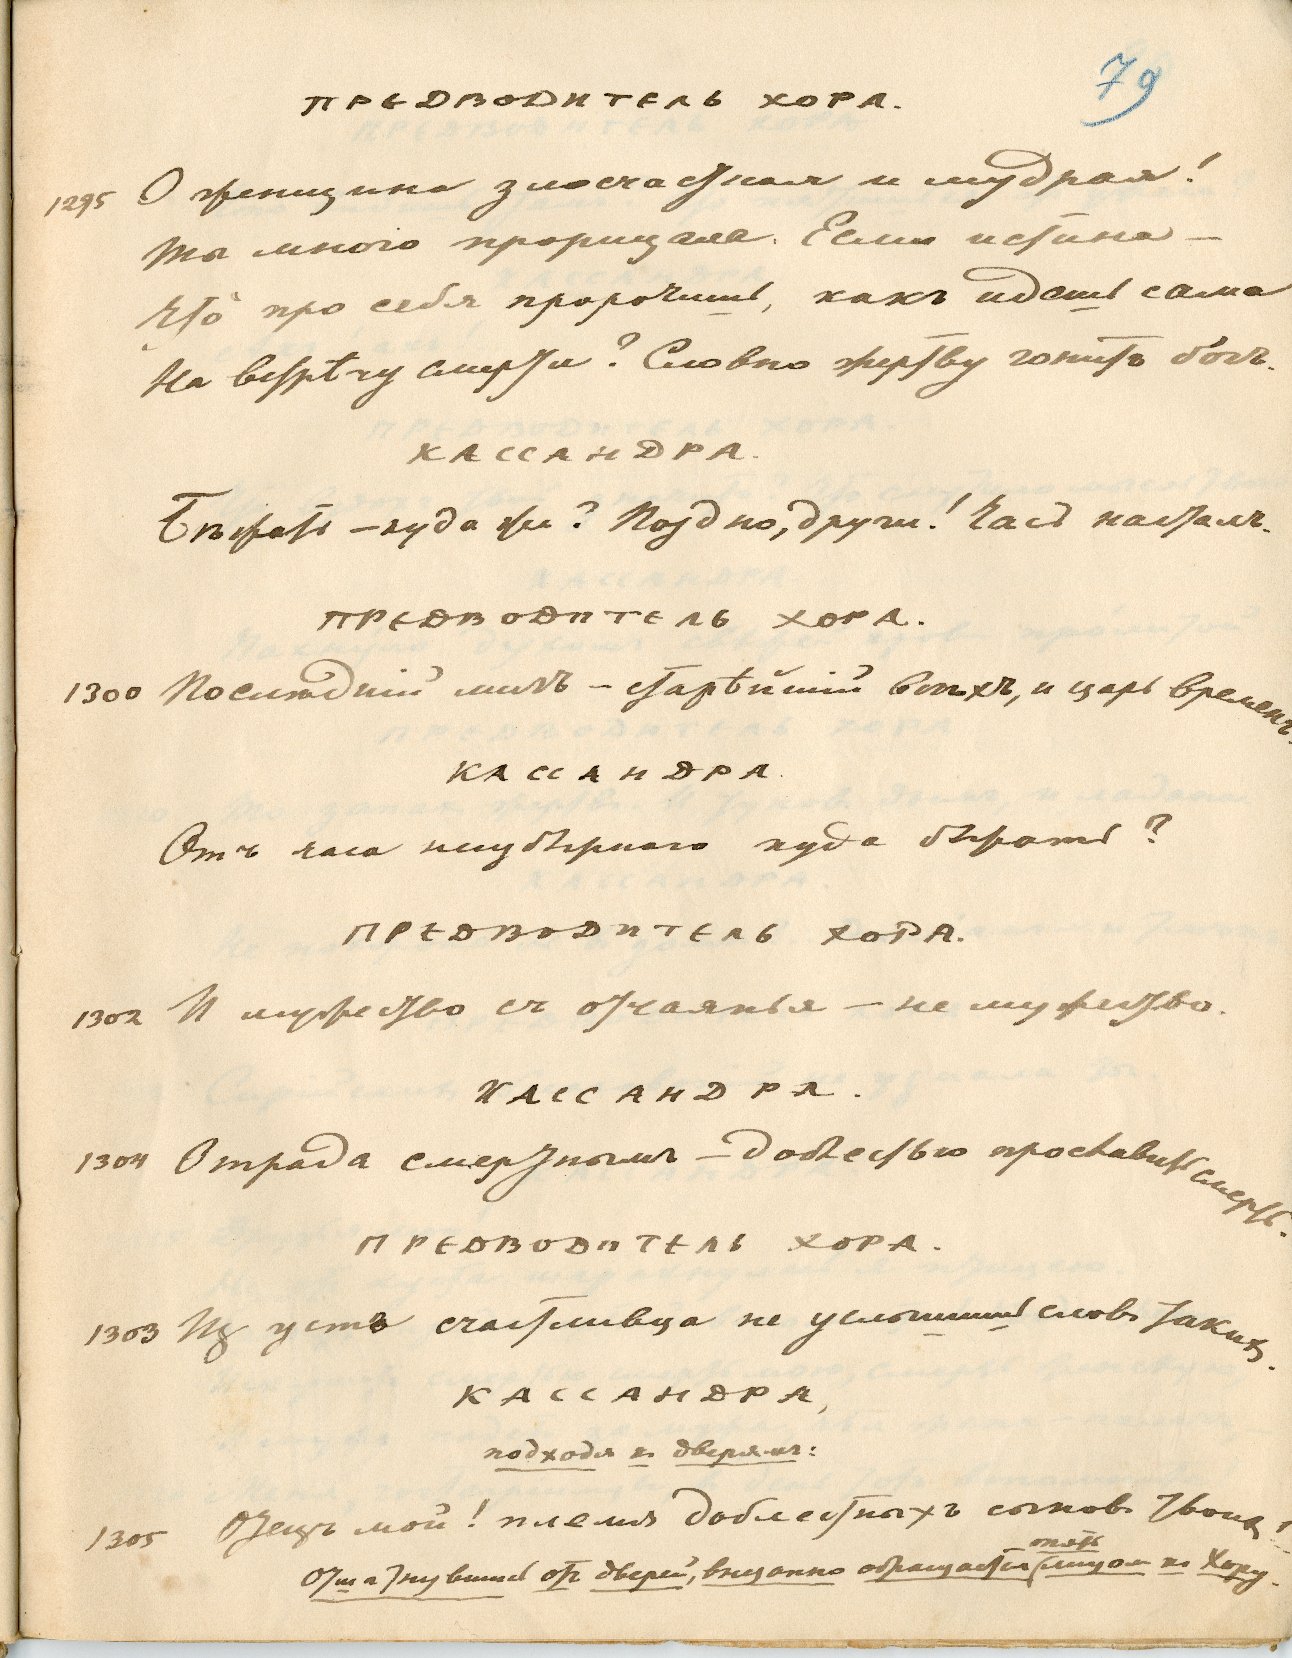 79
ПРЕДВОДИТЕЛЬ ХОРА.
1295 О женщина злосчастная и мудрая!
Ты много прорицала. Если истина –
Что̀ про себя пророчишь, какъ идешь сама
На встрѣчу смерти? Словно жертву гонитъ богъ.
КАССАНДРА.
Бѣжать – куда же? Поздно, други! Часъ насталъ.
ПРЕДВОДИТЕЛЬ ХОРА.
1300 Послѣдній мигъ – старѣйшій всѣхъ, и царь временъ.
КАССАНДРА.
Отъ часа неизбѣжнаго куда бѣжать?
ПРЕДВОДИТЕЛЬ ХОРА.
1302 И мужество съ отчаянья – не мужество.
КАССАНДРА.
1304 Отрада смертнымъ – доблестью прославить смерть.
ПРЕДВОДИТЕЛЬ ХОРА.
1303 Из устъ счастливца не услышишь словъ такихъ.
КАССАНДРА,
подходя къ дверямъ:
1305 Отецъ мой! племя доблестныхъ сыновъ твоихъ!
опять
Отшатнувшись отъ дверей, внезапно обращается лицомъ къ Хору.